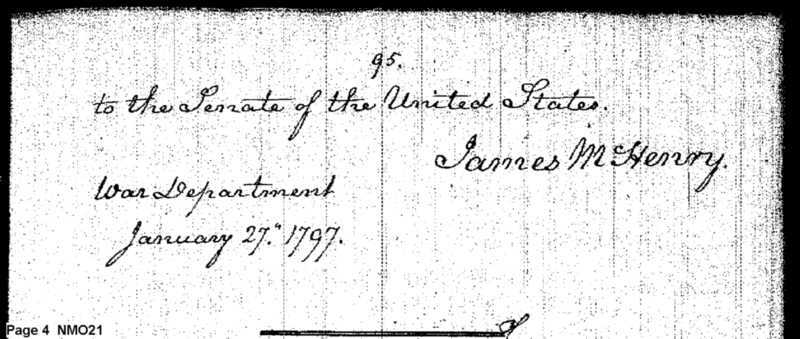 95.
to the Senate of the United States.
James McHenry.
War Department
January 27." 1797.
Page 4 NMO21